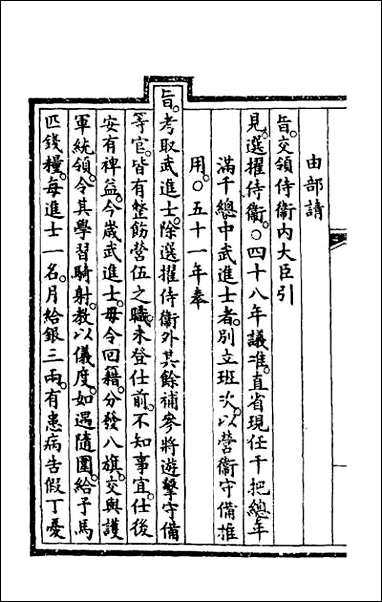 由部請
旨。交領侍衛內大臣引
見。選擢侍衛。○四十八年議准。直省現任千把總年
滿千總中武進士者。別立班次。以營衛守備推
用。○五十一年奉
旨。考取武進士。除選擢侍衛外其餘補參將遊擊守備
等官。皆有整飭營伍之職。未登仕前。不知事宜。仕後
安有裨益。今歲武進士。毋令回籍。分發八旗。交與護
軍統領。令其學習騎射。教以儀度。如遇隨圍。給予馬
匹錢糧。每進士一名。月給銀三兩。有患病告假丁憂